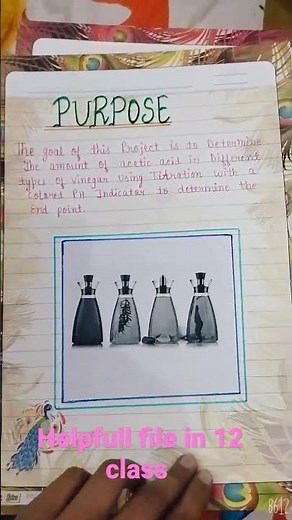 PURPOSE
The goal of this Project is to Determine
The amount of acetic acid in Different
types of vinegar using Titration with a
Colored PH Indicator to determine the
End point.
Helpfull file in 12
class
8612